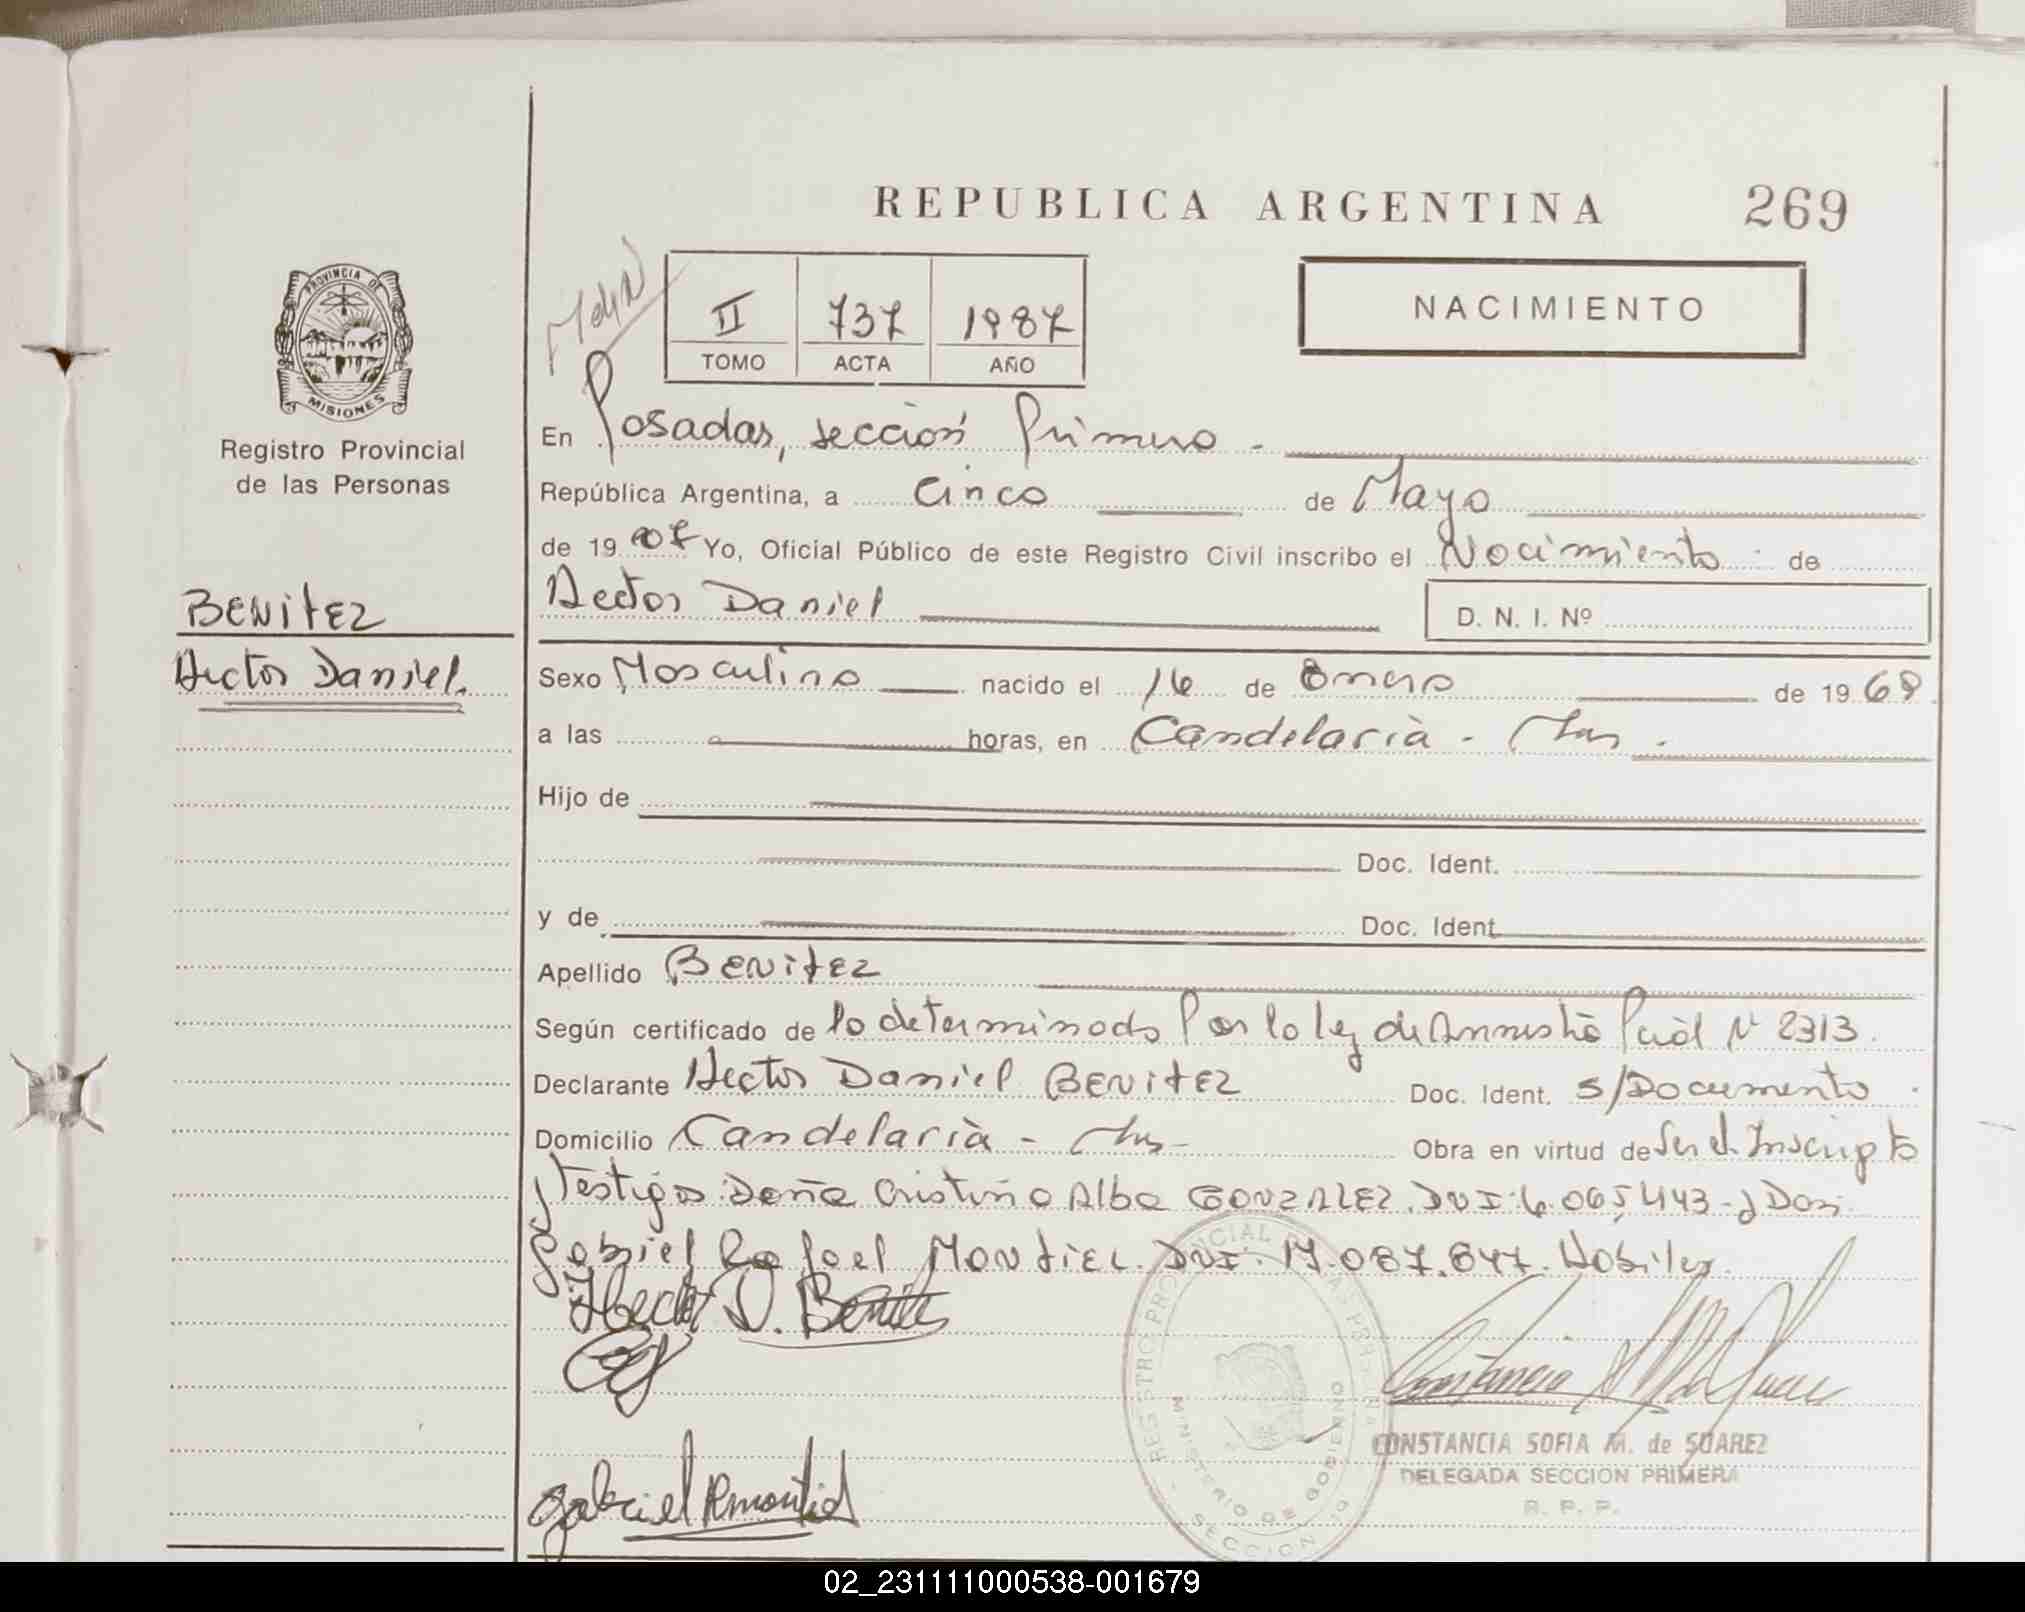 REPUBLICA ARGENTINA 269
PROVINCIA DE
MISIONES
Registro Provincial
de las Personas
BENITEZ
Hector Daniel.
II 737 1987
TOMO ACTA AÑO
NACIMIENTO
En Posadas, sección Primera -
República Argentina, a Cinco de Mayo
de 19 87 Yo, Oficial Público de este Registro Civil inscribo el Nacimiento de
Hector Daniel D. N. I. Nº
Sexo Masculino nacido el 16 de Enero de 19 68
a las horas, en Candelaria - Mns.
Hijo de
Doc. Ident.
y de Doc. Ident.
Apellido BENITEZ
Según certificado de lo determinado Por la ley de Amnistia Pcial Nº 2313.
Declarante Hector Daniel BENITEZ Doc. Ident. S/Documento
Domicilio Candelaria - Mns - Obra en virtud de Ser el Inscripto
Testigos Doña Cristina Alba GONZALEZ. DNI: 6.065,443 - y Don
Gabriel Rafael MONTIEL. DNI: 17.087.847. Habiles.
Hector D. Benitez
Gabriel R Montiel
REGISTRO PROVINCIAL DE LAS PERSONAS
MINISTERIO DE GOBIERNO
SECCION 1ª
CONSTANCIA SOFIA M. de SUAREZ
DELEGADA SECCION PRIMERA
R. P. P.
02_231111000538-001679